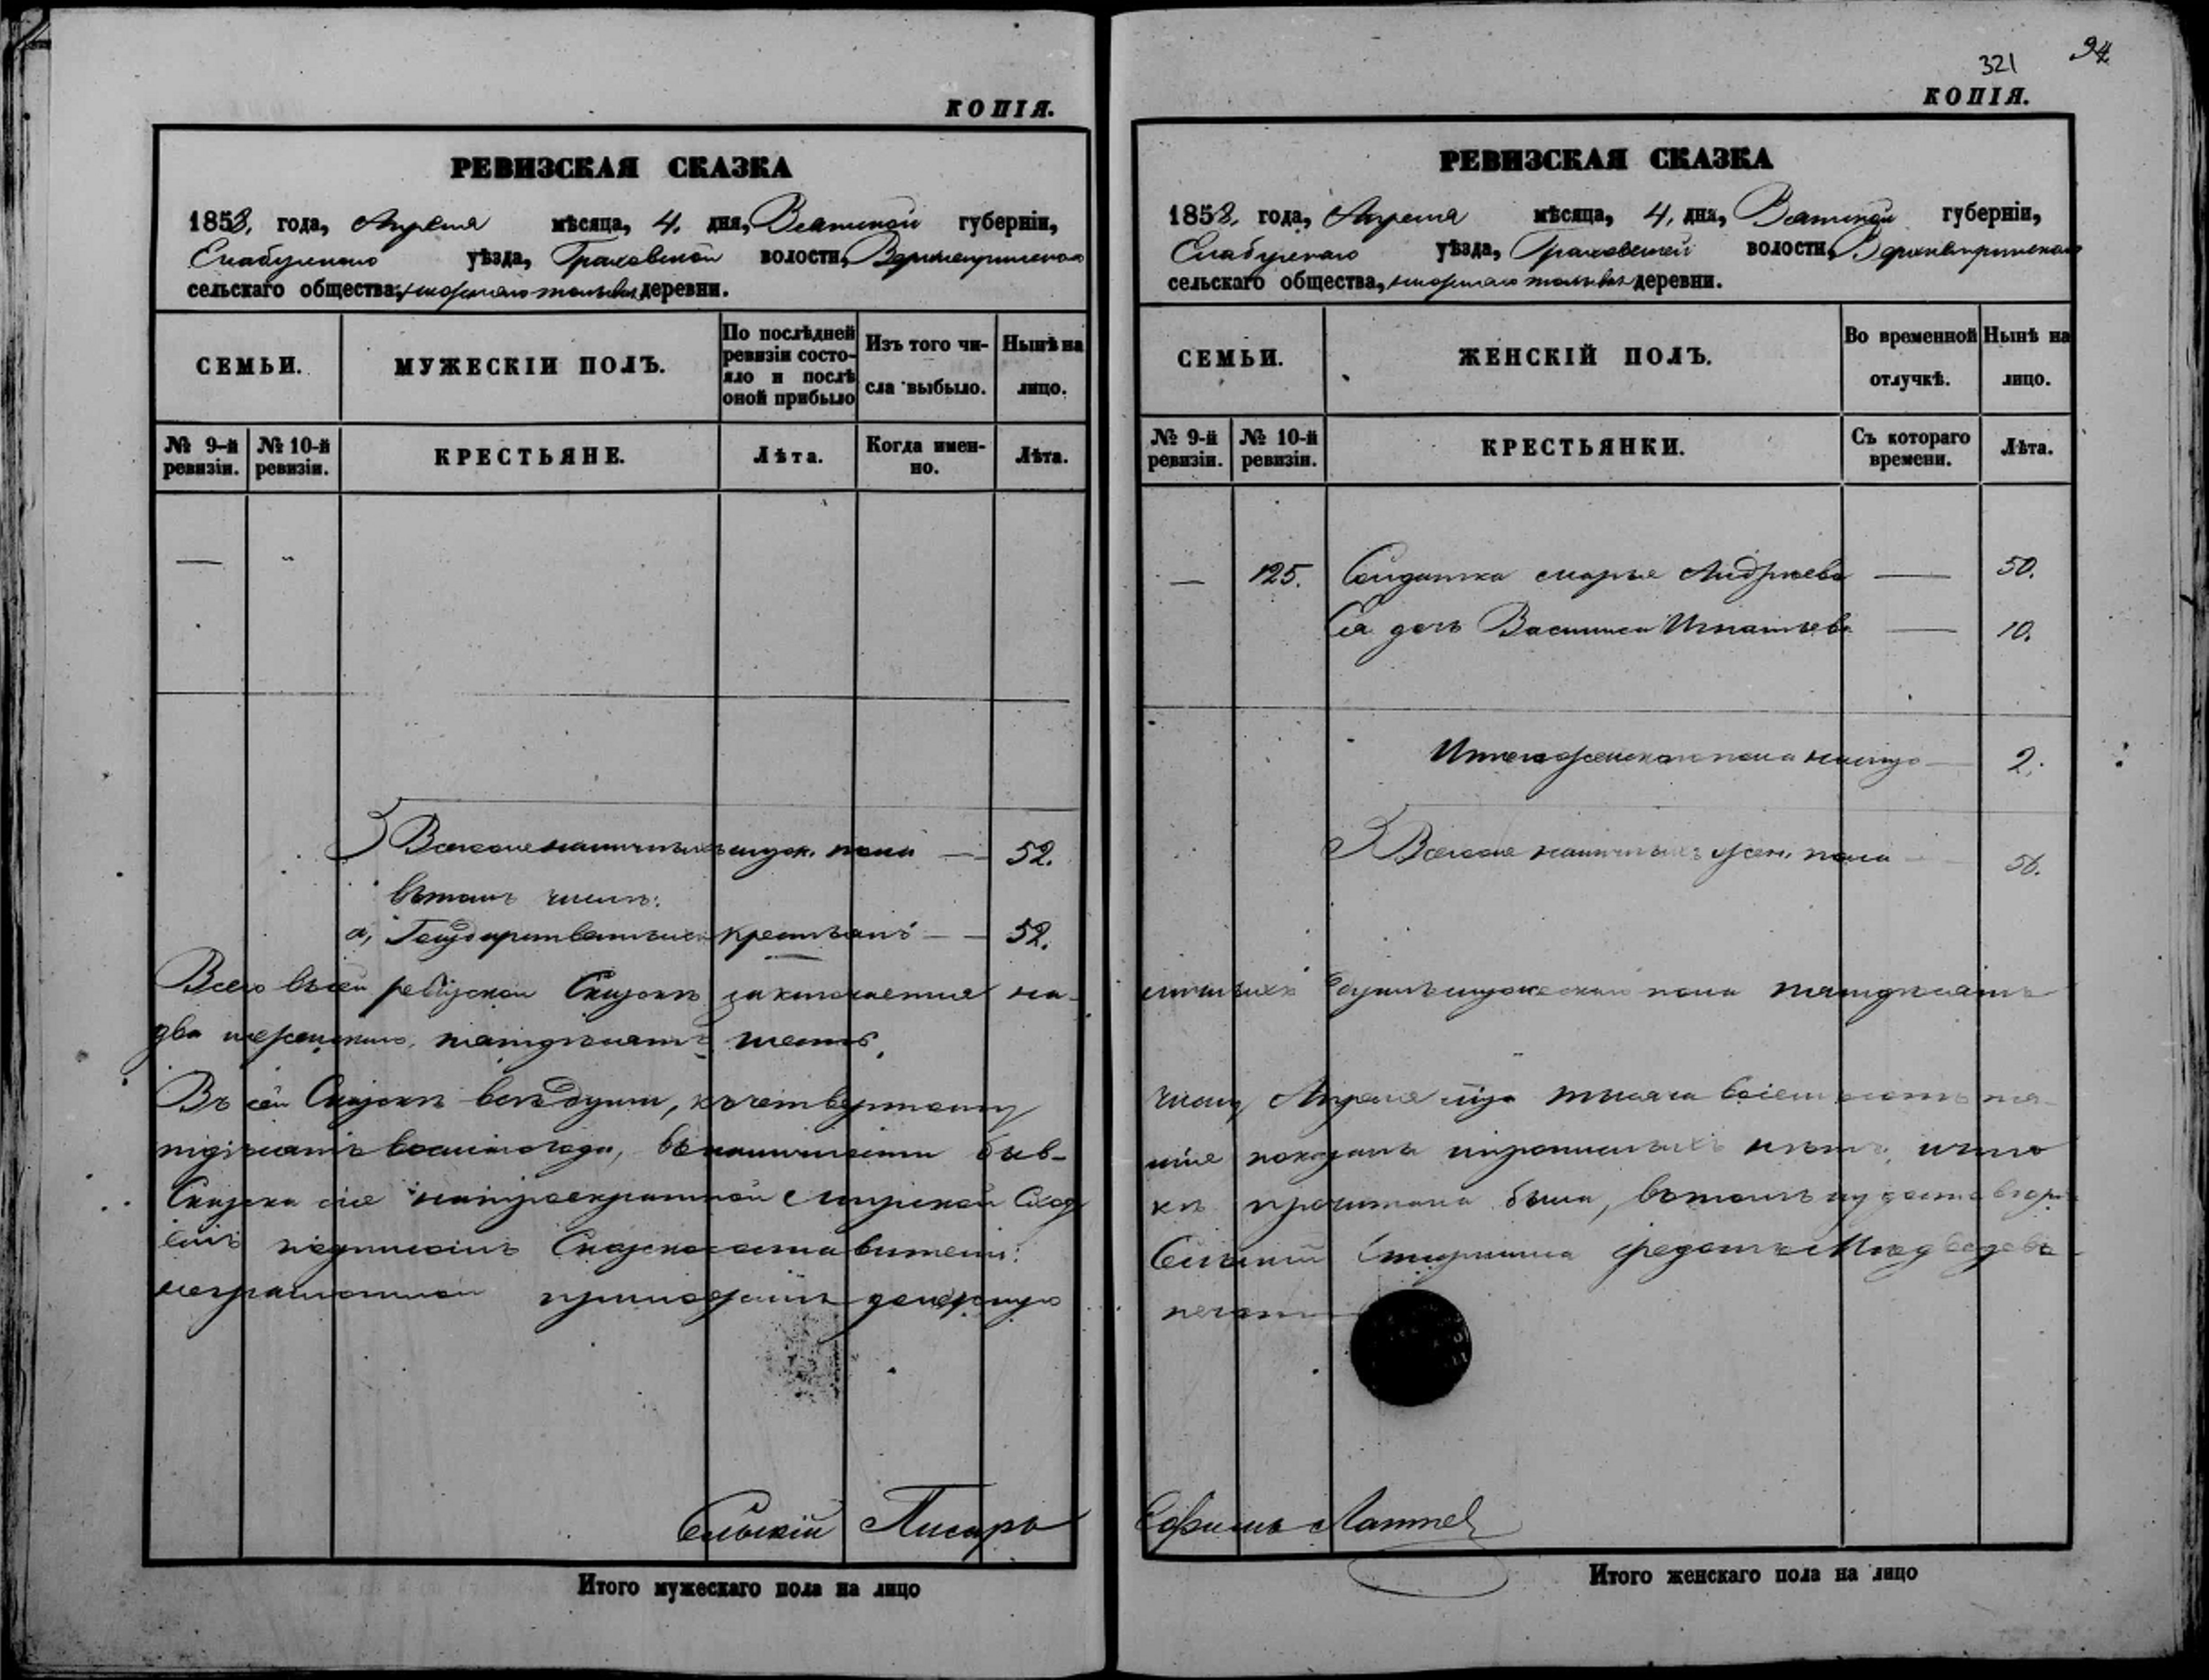 КОПІЯ.
РЕВИЗСКАЯ СКАЗКА
1858, года, Апреля мѣсяца, 4, дня, Вятской губерніи,
Елабужского уѣзда, Граховской волости,
сельскаго общества, деревни.
СЕМЬИ.
МУЖЕСКІЙ ПОЛЪ.
По послѣдней
ревизіи состо-
яло и послѣ
оной прибыло
Изъ того чи-
сла выбыло.
Нынѣ на
лицо.
№ 9-й
ревизіи.
№ 10-й
ревизіи.
КРЕСТЬЯНЕ.
Лѣта.
Когда имен-
но.
Лѣта.
Всего наличныхъ муж. пола — 52.
въ томъ числѣ:
а, Государственныхъ крестьянъ — 52.
Всего въ сей ревизской Сказкѣ заключается на-
два женского пятьдесятъ шесть.
Въ сей Сказкѣ все души, къ четвертому
пятьдесятъ восьмого года, въ наличности быв-
Сказка сія на мирской Сход
подписомъ Сказкосоставители:
неграмотной приложилъ должную
Сельскій Писарь
Итого мужескаго пола на лицо
321
94
КОПІЯ.
РЕВИЗСКАЯ СКАЗКА
1858, года, Апреля мѣсяца, 4, дня, Вятской губерніи,
Елабужского уѣзда, Граховской волости,
сельскаго общества, деревни.
СЕМЬИ.
ЖЕНСКІЙ ПОЛЪ.
Во временной
отлучкѣ.
Нынѣ на
лицо.
№ 9-й
ревизіи.
№ 10-й
ревизіи.
КРЕСТЬЯНКИ.
Съ котораго
времени.
Лѣта.
— 125. Солдатка Марья Андреева — 50.
Ея дочь Василиса Игнатьева — 10.
Итого женского пола налицо — 2.
Всего наличныхъ жен. пола 56.
личныхъ душъ мужескаго пола пятьдесятъ
числу Апреля тысяча восемьсотъ пя-
шіе показаны прописныхъ нѣтъ, и что
прочитана была, въ томъ
Сельский Старшина Федотъ Медведевъ
печать
Ефимъ Лаптев
Итого женскаго пола на лицо